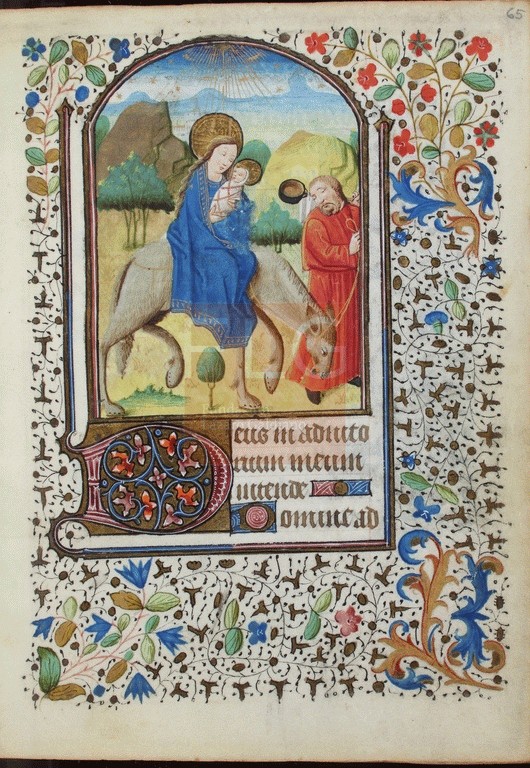 65
Deus in adiuto
rium meum
intende
Domine ad